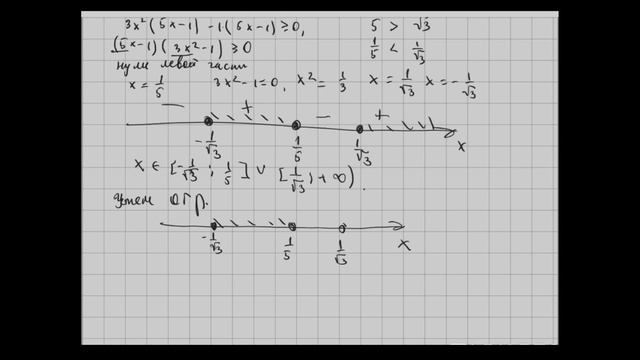 3x²(5x-1) -1(5x-1) ≥ 0,
(5x-1)(3x²-1) ≥ 0
5 > √3
1/5 < 1/√3
нули левой части
x = 1/5 3x²-1=0, x² = 1/3 x = 1/√3 x = -1/√3
− + − +
-1/√3 1/5 1/√3 x
x ∈ [-1/√3; 1/5] ∪ [1/√3; +∞).
Учтем огр.
-1/√3 1/5 1/√3 x